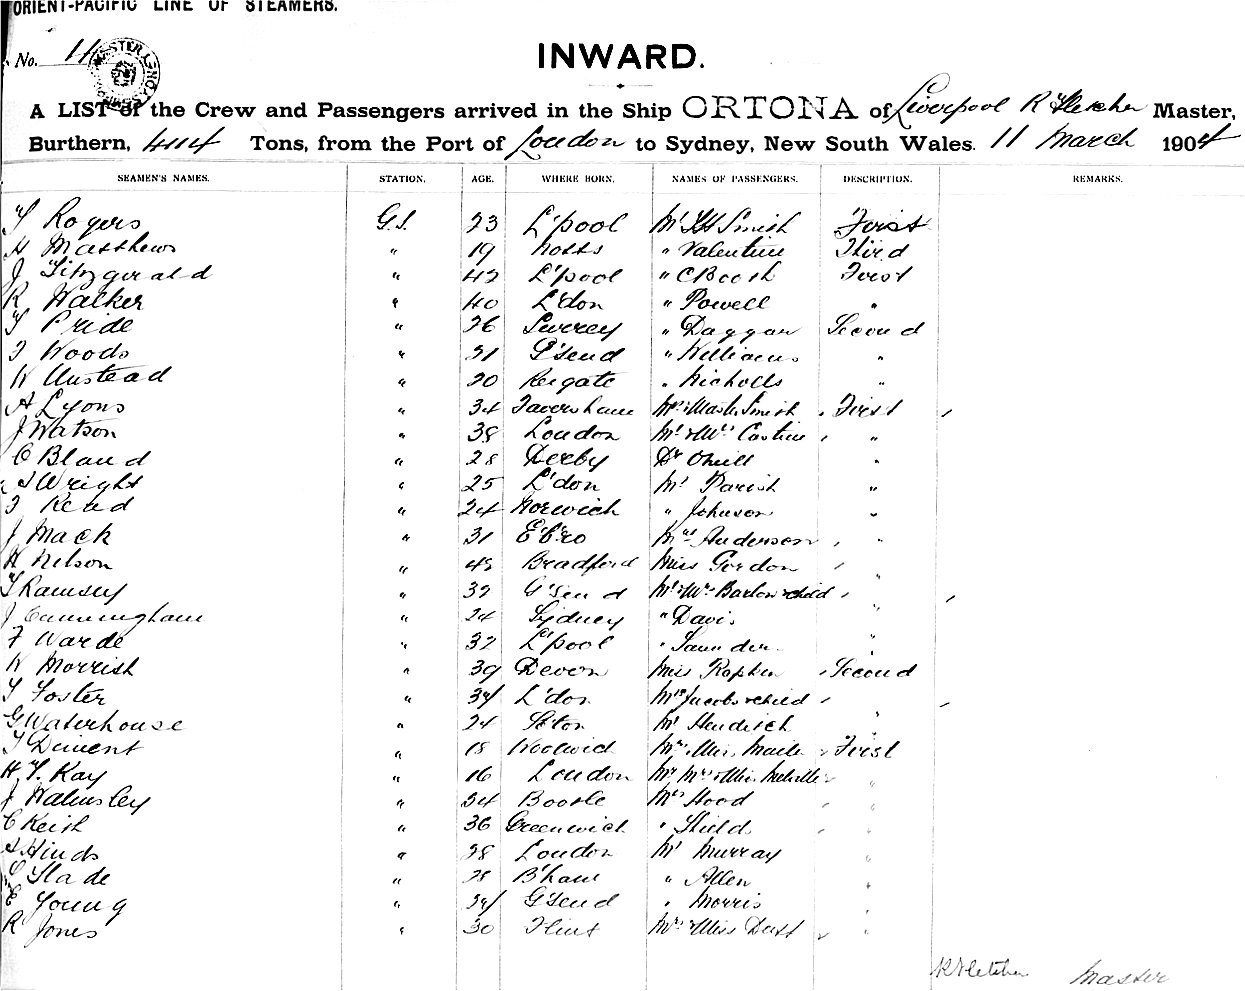 ORIENT-PACIFIC LINE OF STEAMERS.
No. 11
INWARD.
A LIST of the Crew and Passengers arrived in the Ship ORTONA of Liverpool R Fletcher Master,
Burthern, 4114 Tons, from the Port of London to Sydney, New South Wales. 11 March 1904
SEAMEN'S NAMES. STATION. AGE. WHERE BORN. NAMES OF PASSENGERS. DESCRIPTION. REMARKS.
T Rogers G.S. 23 L'pool Mr Smith First
H Matthews " 19 Notts " Valentine Third
J Fitzgerald " 42 L'pool " C Booth First
R Walker " 40 L'don " Powell "
T Pride " 26 Surrey " Daggar Second
F Woods " 21 G'send " Williams "
W Unstead " 20 Reigate " Nicholls "
A Lyons " 34 Faversham Mrs & Mastr Smith First
J Watson " 38 London Mr & Mrs Castine "
C Bland " 28 Derby Dr Oneill "
S Wright " 25 L'don Mr Parish "
F Read " 24 Norwich " Johnson "
J Mack " 31 E'b'ro Mrs Anderson "
H Nelson " 43 Bradford Miss Gordon "
T Ramsey " 32 G'send Mr & Mrs Barlow & child "
J Cunningham " 24 Sydney " Davis "
F Warde " 32 L'pool " Saunder "
W Morrish " 39 Devon Miss Second
T Foster " 34 L'don Mrs Jacobs & child "
G Waterhouse " 24 Mr Hendisch "
T Dument " 18 Woolwich Mrs & Miss First
H T Kay " 16 London Mr Mrs & Miss Melville "
J Walmsley " 34 Bootle Mrs Hood "
C Keish " 36 Greenwich " Shield "
S Hinds " 28 London Mr Murray "
C Slade " 28 B'ham " Allen "
E Young " 24 G'send " Morris "
R Jones " 30 Flint Mrs & Miss Dast "
R Fletcher Master